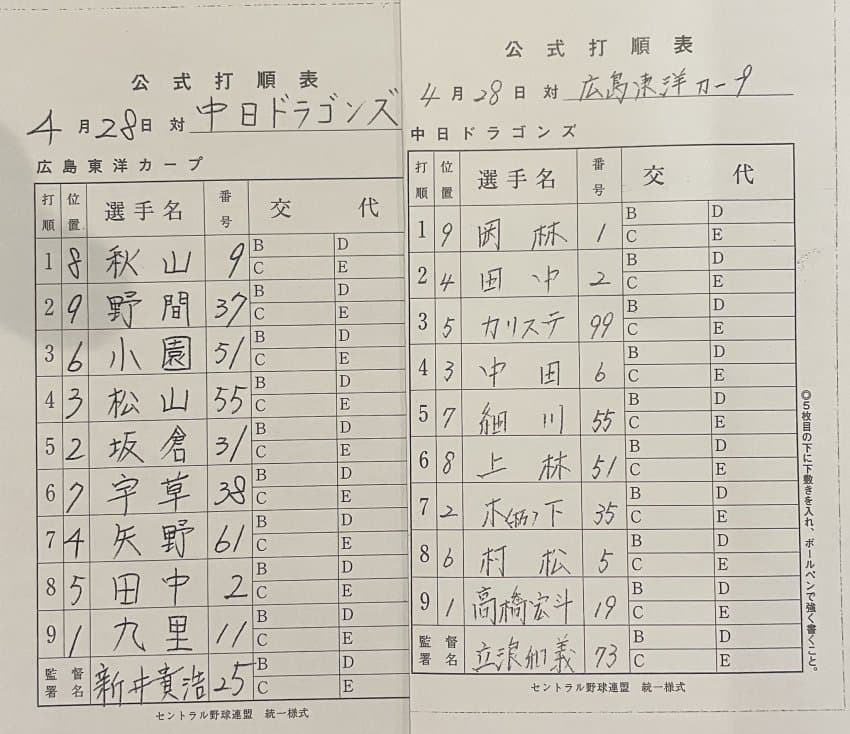 公式打順表
4月28日 対 中日ドラゴンズ
広島東洋カープ
打順 位置 選手名 番号 交代
1 8 秋山 9 B D C E
2 9 野間 37 B D C E
3 6 小園 51 B D C E
4 3 松山 55 B D C E
5 2 坂倉 31 B D C E
6 7 宇草 38 B D C E
7 4 矢野 61 B D C E
8 5 田中 2 B D C E
9 1 九里 11 B D C E
監督署名 新井貴浩 25 B D C E
セントラル野球連盟 統一様式
公式打順表
4月28日 対 広島東洋カープ
中日ドラゴンズ
打順 位置 選手名 番号 交代
1 9 岡林 1 B D C E
2 4 田中 2 B D C E
3 5 カリステ 99 B D C E
4 3 中田 6 B D C E
5 7 細川 55 B D C E
6 8 上林 51 B D C E
7 2 木(拓)下 35 B D C E
8 6 村松 5 B D C E
9 1 高橋宏斗 19 B D C E
監督署名 立浪和義 73 B D C E
セントラル野球連盟 統一様式
◎5枚目の下に下敷きを入れ、ボールペンで強く書くこと。